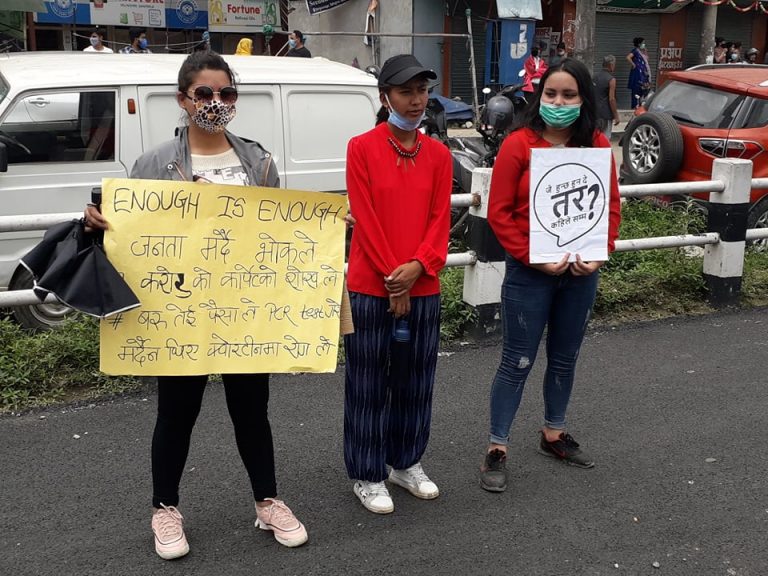 Fortune
ENOUGH IS ENOUGH
जनता मर्दै भोकले
करोड को कार्पेटको शोख ले
# बरु तेई पैसा ले PCR test गरे
मर्दैन थिए क्वोरटीनमा रोग ले
जे हुन्छ हुन दे
तर?
कहिले सम्म